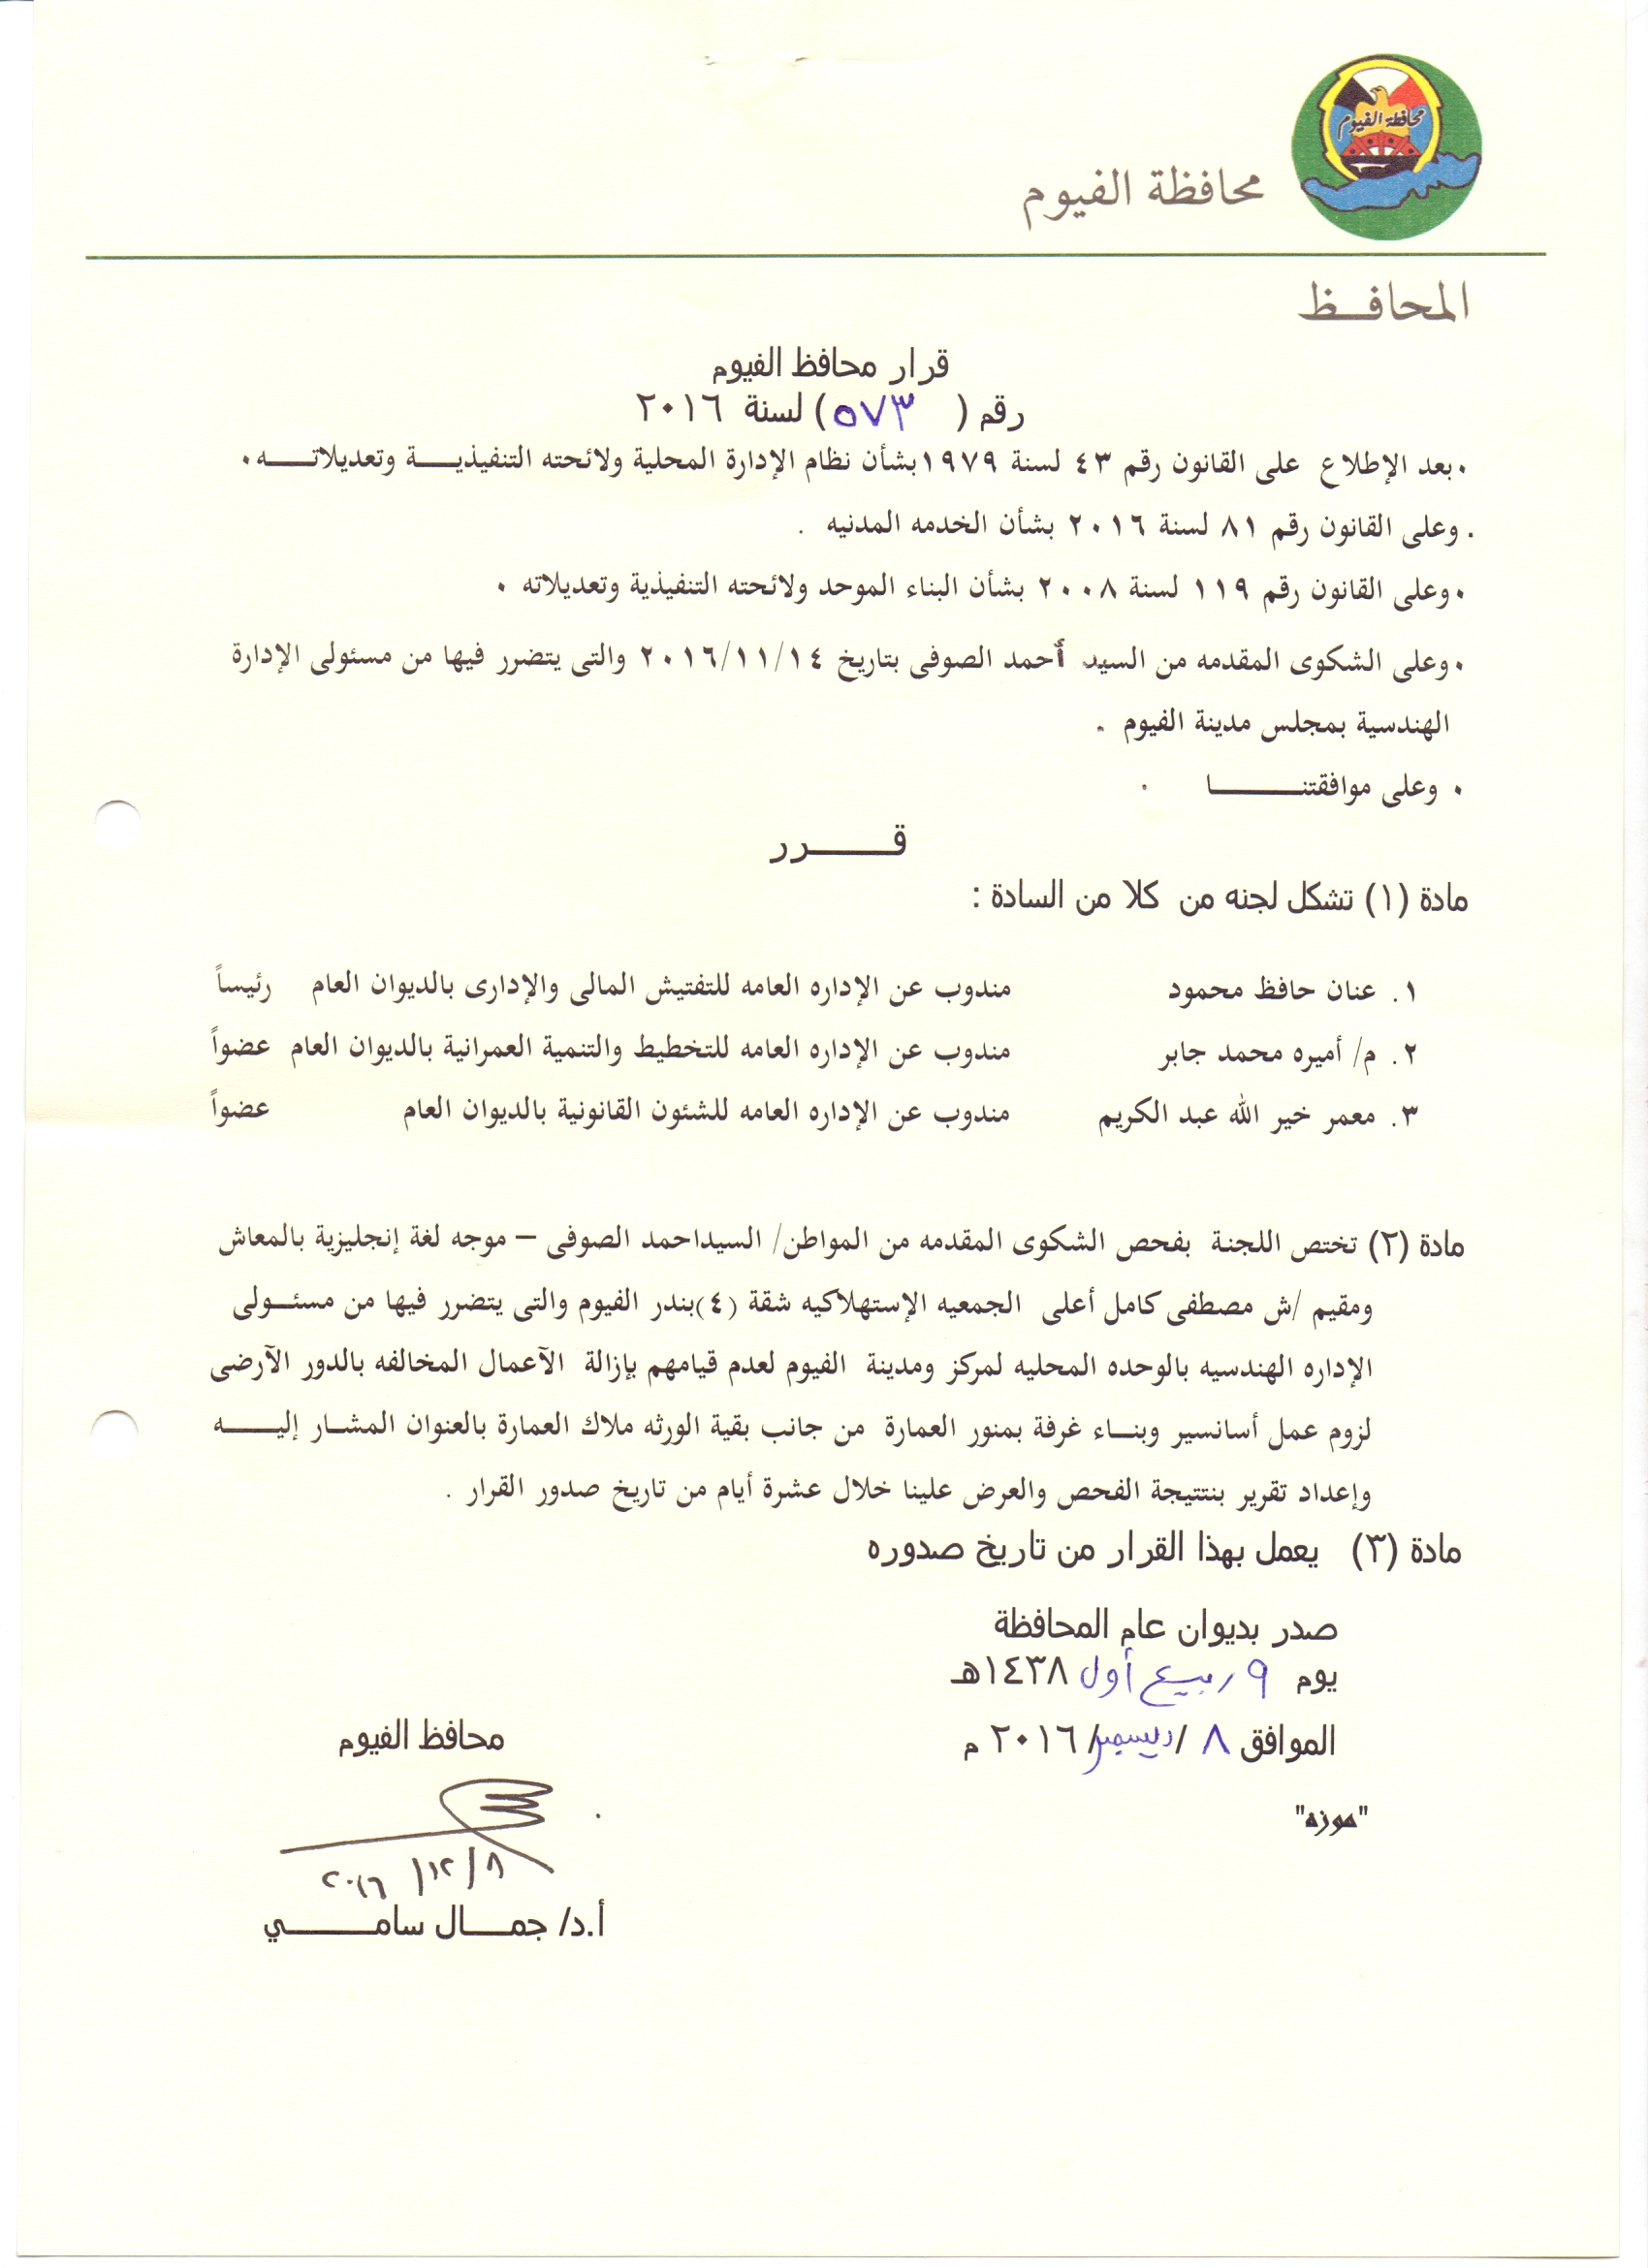 محافظة الفيوم
محافظة الفيوم
المحافـــظ
قرار محافظ الفيوم
رقم ( ٥٧٣ ) لسنة ٢٠١٦
٠ بعد الإطلاع على القانون رقم ٤٣ لسنة ١٩٧٩ بشأن نظام الإدارة المحلية ولائحته التنفيذيــــة وتعديلاتــــه ٠
. وعلى القانون رقم ٨١ لسنة ٢٠١٦ بشأن الخدمه المدنيه .
٠ وعلى القانون رقم ١١٩ لسنة ٢٠٠٨ بشأن البناء الموحد ولائحته التنفيذية وتعديلاته ٠
٠ وعلى الشكوى المقدمه من السيد أحمد الصوفى بتاريخ ٢٠١٦/١١/١٤ والتى يتضرر فيها من مسئولى الإدارة
الهندسية بمجلس مدينة الفيوم .
٠ وعلى موافقتنـــــــــا .
قـــــــرر
مادة (١) تشكل لجنه من كلا من السادة :
١. عنان حافظ محمود مندوب عن الإداره العامه للتفتيش المالى والإدارى بالديوان العام رئيساً
٢. م/ أميره محمد جابر مندوب عن الإداره العامه للتخطيط والتنمية العمرانية بالديوان العام عضواً
٣. معمر خير الله عبد الكريم مندوب عن الإداره العامه للشئون القانونية بالديوان العام عضواً
مادة (٢) تختص اللجنة بفحص الشكوى المقدمه من المواطن/ السيداحمد الصوفى – موجه لغة إنجليزية بالمعاش
ومقيم /ش مصطفى كامل أعلى الجمعيه الإستهلاكيه شقة (٤)بندر الفيوم والتى يتضرر فيها من مسئـــولى
الإداره الهندسيه بالوحده المحليه لمركز ومدينة الفيوم لعدم قيامهم بإزالة الآعمال المخالفه بالدور الآرضى
لزوم عمل أسانسير وبنـــاء غرفة بمنور العمارة من جانب بقية الورثه ملاك العمارة بالعنوان المشـار إليـــــه
وإعداد تقرير بنتتيجة الفحص والعرض علينا خلال عشرة أيام من تاريخ صدور القرار .
مادة (٣) يعمل بهذا القرار من تاريخ صدوره
صدر بديوان عام المحافظة
يوم ٩ ربيع أول ١٤٣٨هـ
الموافق ٨ /ديسمبر/ ٢٠١٦ م
"موزه"
محافظ الفيوم
٨ /١٢/ ٢٠١٦
أ.د/ جمـــال سامـــــــي